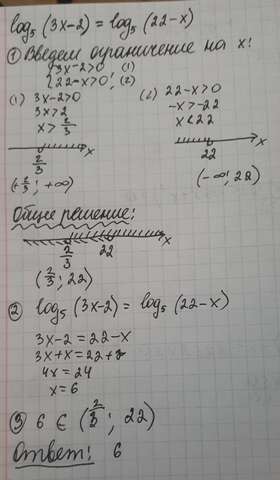 log₅ (3x-2) = log₅ (22-x)
① Введем ограничение на x:
{ 3x-2>0 (1)
{ 22-x>0; (2)
(1) 3x-2>0
3x>2
x > 2/3
x
2/3
(2/3; +∞)
(2) 22-x>0
-x>-22
x<22
x
22
(-∞; 22)
Общее решение:
x
2/3 22
(2/3; 22)
② log₅ (3x-2) = log₅ (22-x)
3x-2 = 22-x
3x+x = 22+2
4x = 24
x = 6
③ 6 ∈ (2/3; 22)
Ответ: 6